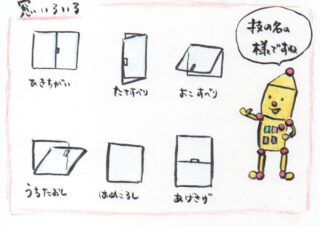 窓いろいろ
ひきちがい
たてすべり
よこすべり
技の名の
様ですね
うちたおし
はめころし
あげさげ